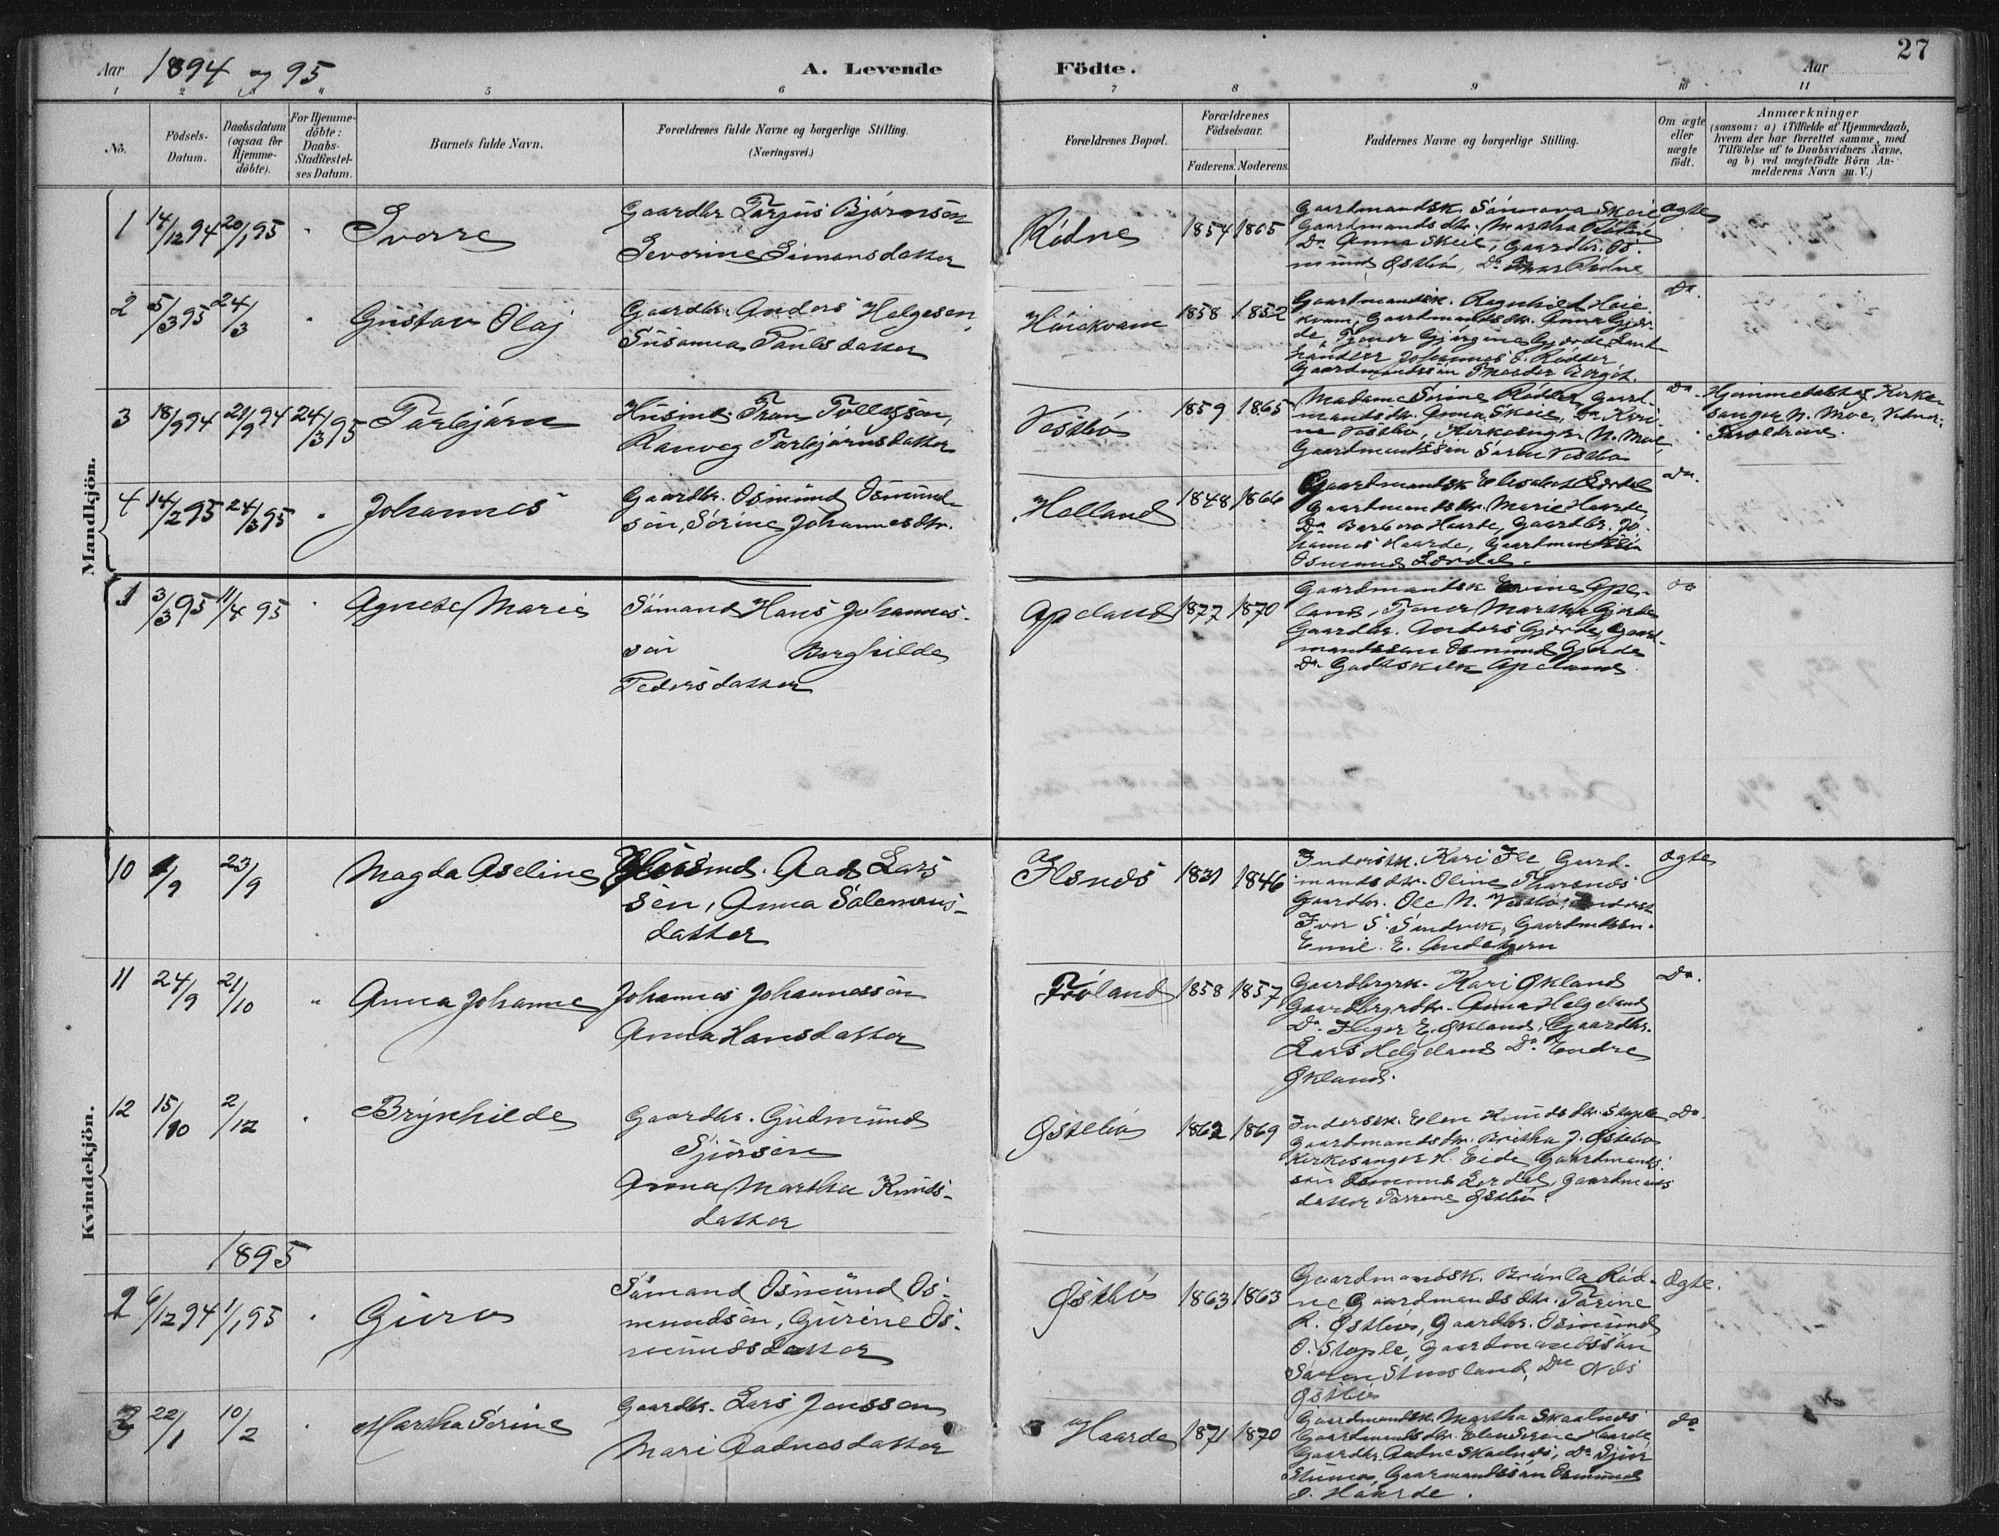 27
Aar 1894 og 95
A. Levende Födte.
Aar
1 2 3 4 5 6 7 8 9 10 11
No.
Födsels-
Datum.
Daabsdatum
(ogsaa for
Hjemme-
döbte).
For Hjemme-
döbte:
Daabs-
Stadfæstel-
ses Datum.
Barnets fulde Navn.
Forældrenes fulde Navne og borgerlige Stilling.
(Næringsvei.)
Forældrenes Bopæl.
Forældrenes
Födselsaar.
Faderens. Moderens.
Faddernes Navne og borgerlige Stilling.
Om ægte
eller
uægte
födt.
Anmærkninger
(saasom: a) i Tilfælde af Hjemmedaab,
hvem der har forrettet samme, med
Tilföielse af to Daabsvidners Navne,
og b) ved uægtefödte Börn An-
melderens Navn m. V.)
Mandkjön.
1 14/12 94 20/1 95 " Sverre
Gaardbr. Tarjus Björnsön
Severine Simonsdatter
Rödne 1854 1865
Gaardmandsk. Skeie
Gaardmandsdtr. Martha
Do Anna Skeie, Gaardbr. Os-
mund Østbö, Do Rödne
ægte
2 5/3 95 24/3 " Gustav Olaj
Gaardbr. Anders Helgesen,
Susanna Paulsdatter
1858 1852
Gaardmandsk. Ragnhild
kvam, Gaardmandsdtr. Anna
Johannes
Gaardmandssön
Do.
3 18/9 94 21/9 94 24/3 95 Torbjörn
Husmd. Tron Tollefssön,
Ranveg Torbjörnsdatter
Vestbö 1859 1865
Madame Serine Rödder, Gaard-
mandsdtr. Anna Skeie, Do
Vestbö, Kirkesanger N. Moe,
Gaardmandssön Sören Vestbö
Do
Hjemmedöbt af Kirke-
sanger N. Moe, Vidner:
Forældrene.
4 14/2 95 24/3 95 " Johannes
Gaardbr. Osmund Osmund-
sön, Serine Johannesdtr.
Helland 1848 1866
Gaardmandsk Elisabet
Gaardmandsdtr. Marie Haarde,
Do Barbara Haarde, Gaardbr. Jo-
hannes Haarde, Gaardmandssön
Osmund
Do.
1 3/3 95 11/4 95 " Agnete Marie
Sömand Hans Johannes-
sön Borghilde
Pedersdatter
Apeland 1877 1870
Gaardmandsk Ape-
land, Tjener Martha Gjerde
Gaardbr. Anders Gjerde, Gaard-
mandssön Osmund Gjerde
Do Godtskalk Apeland.
do
Kvindekjön.
10 1/9 23/9 Magda Aseline
Husmd. Aad Lars
sön, Anna Salemons-
datter
Ilsnæs 1831 1846
Inderstk. Kari Gard-
mandsdtr. Oline
Gaardbr. Ole N. Vestbö, Inderst
Iver S. Sandvik, Gaardmdssön
E.
ægte
11 24/9 21/10 " Anna Johanne
Johannes Johannessön
Anna Hansdatter
Fröland 1858 1857
Gaardbrgrk. Kari Økland
Gaardbrgrdtr. Anna Helgeland
Do E. Økland, Gaardbr.
Lars Helgeland Do Endre
Økland.
Do.
12 15/10 2/12 " Brynhilde
Gaardbr. Gudmund
Sjursen
Anna Martha Knuds-
datter
Østebö 1862 1869
Inderstk. Elen Knudsdtr. Staple
Gaardmandsdtr. Britha J. Østebö
Kirkesanger H. Eide, Gaardmands-
sön Osmund, Gaardmands
datter Østbö.
Do.
1895
2 6/12 94 1/1 95 " Guro
Sömand Osmund Os-
mundsön, Gurine Os-
mundsdatter
Østbö 1863 1863
Gaardmandsk. Rød-
ne, Gaardmandsdtr. Tarine
R. Østebö, Gaardbr. Osmund
O. Staple, Gaardmandssön
Sören, Do Nils
Østbö
Ægte.
3 22/1 10/2 " Martha Serine
Gaardbr. Lars Jenssen
Mari Aadnesdatter
Haarde 1871 1870
Gaardmandsk. Martha Skaalnæs
Gaardmandsdtr. Elen Serene Haarde
Gaardbr. Aadne Skaalnæs, Do
Gaarmandssön Osmund
O. Haarde.
do